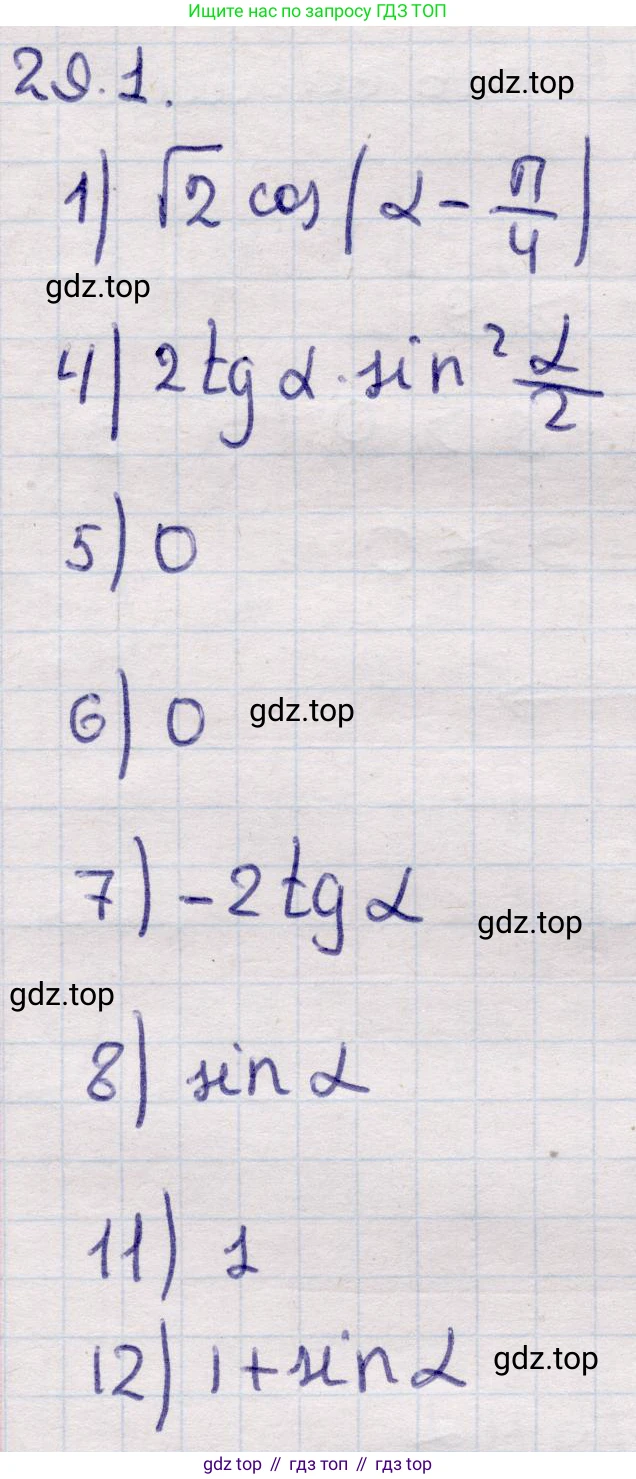 Ищите нас по запросу ГДЗ ТОП
29.1.
gdz.top
1) √2 cos(α - π/4)
gdz.top
4) 2tgα · sin² α/2
5) 0
6) 0
gdz.top
7) -2tgα
gdz.top
gdz.top
8) sinα
11) 1
12) 1+sinα
gdz.top
gdz top // гдз топ // гдз top